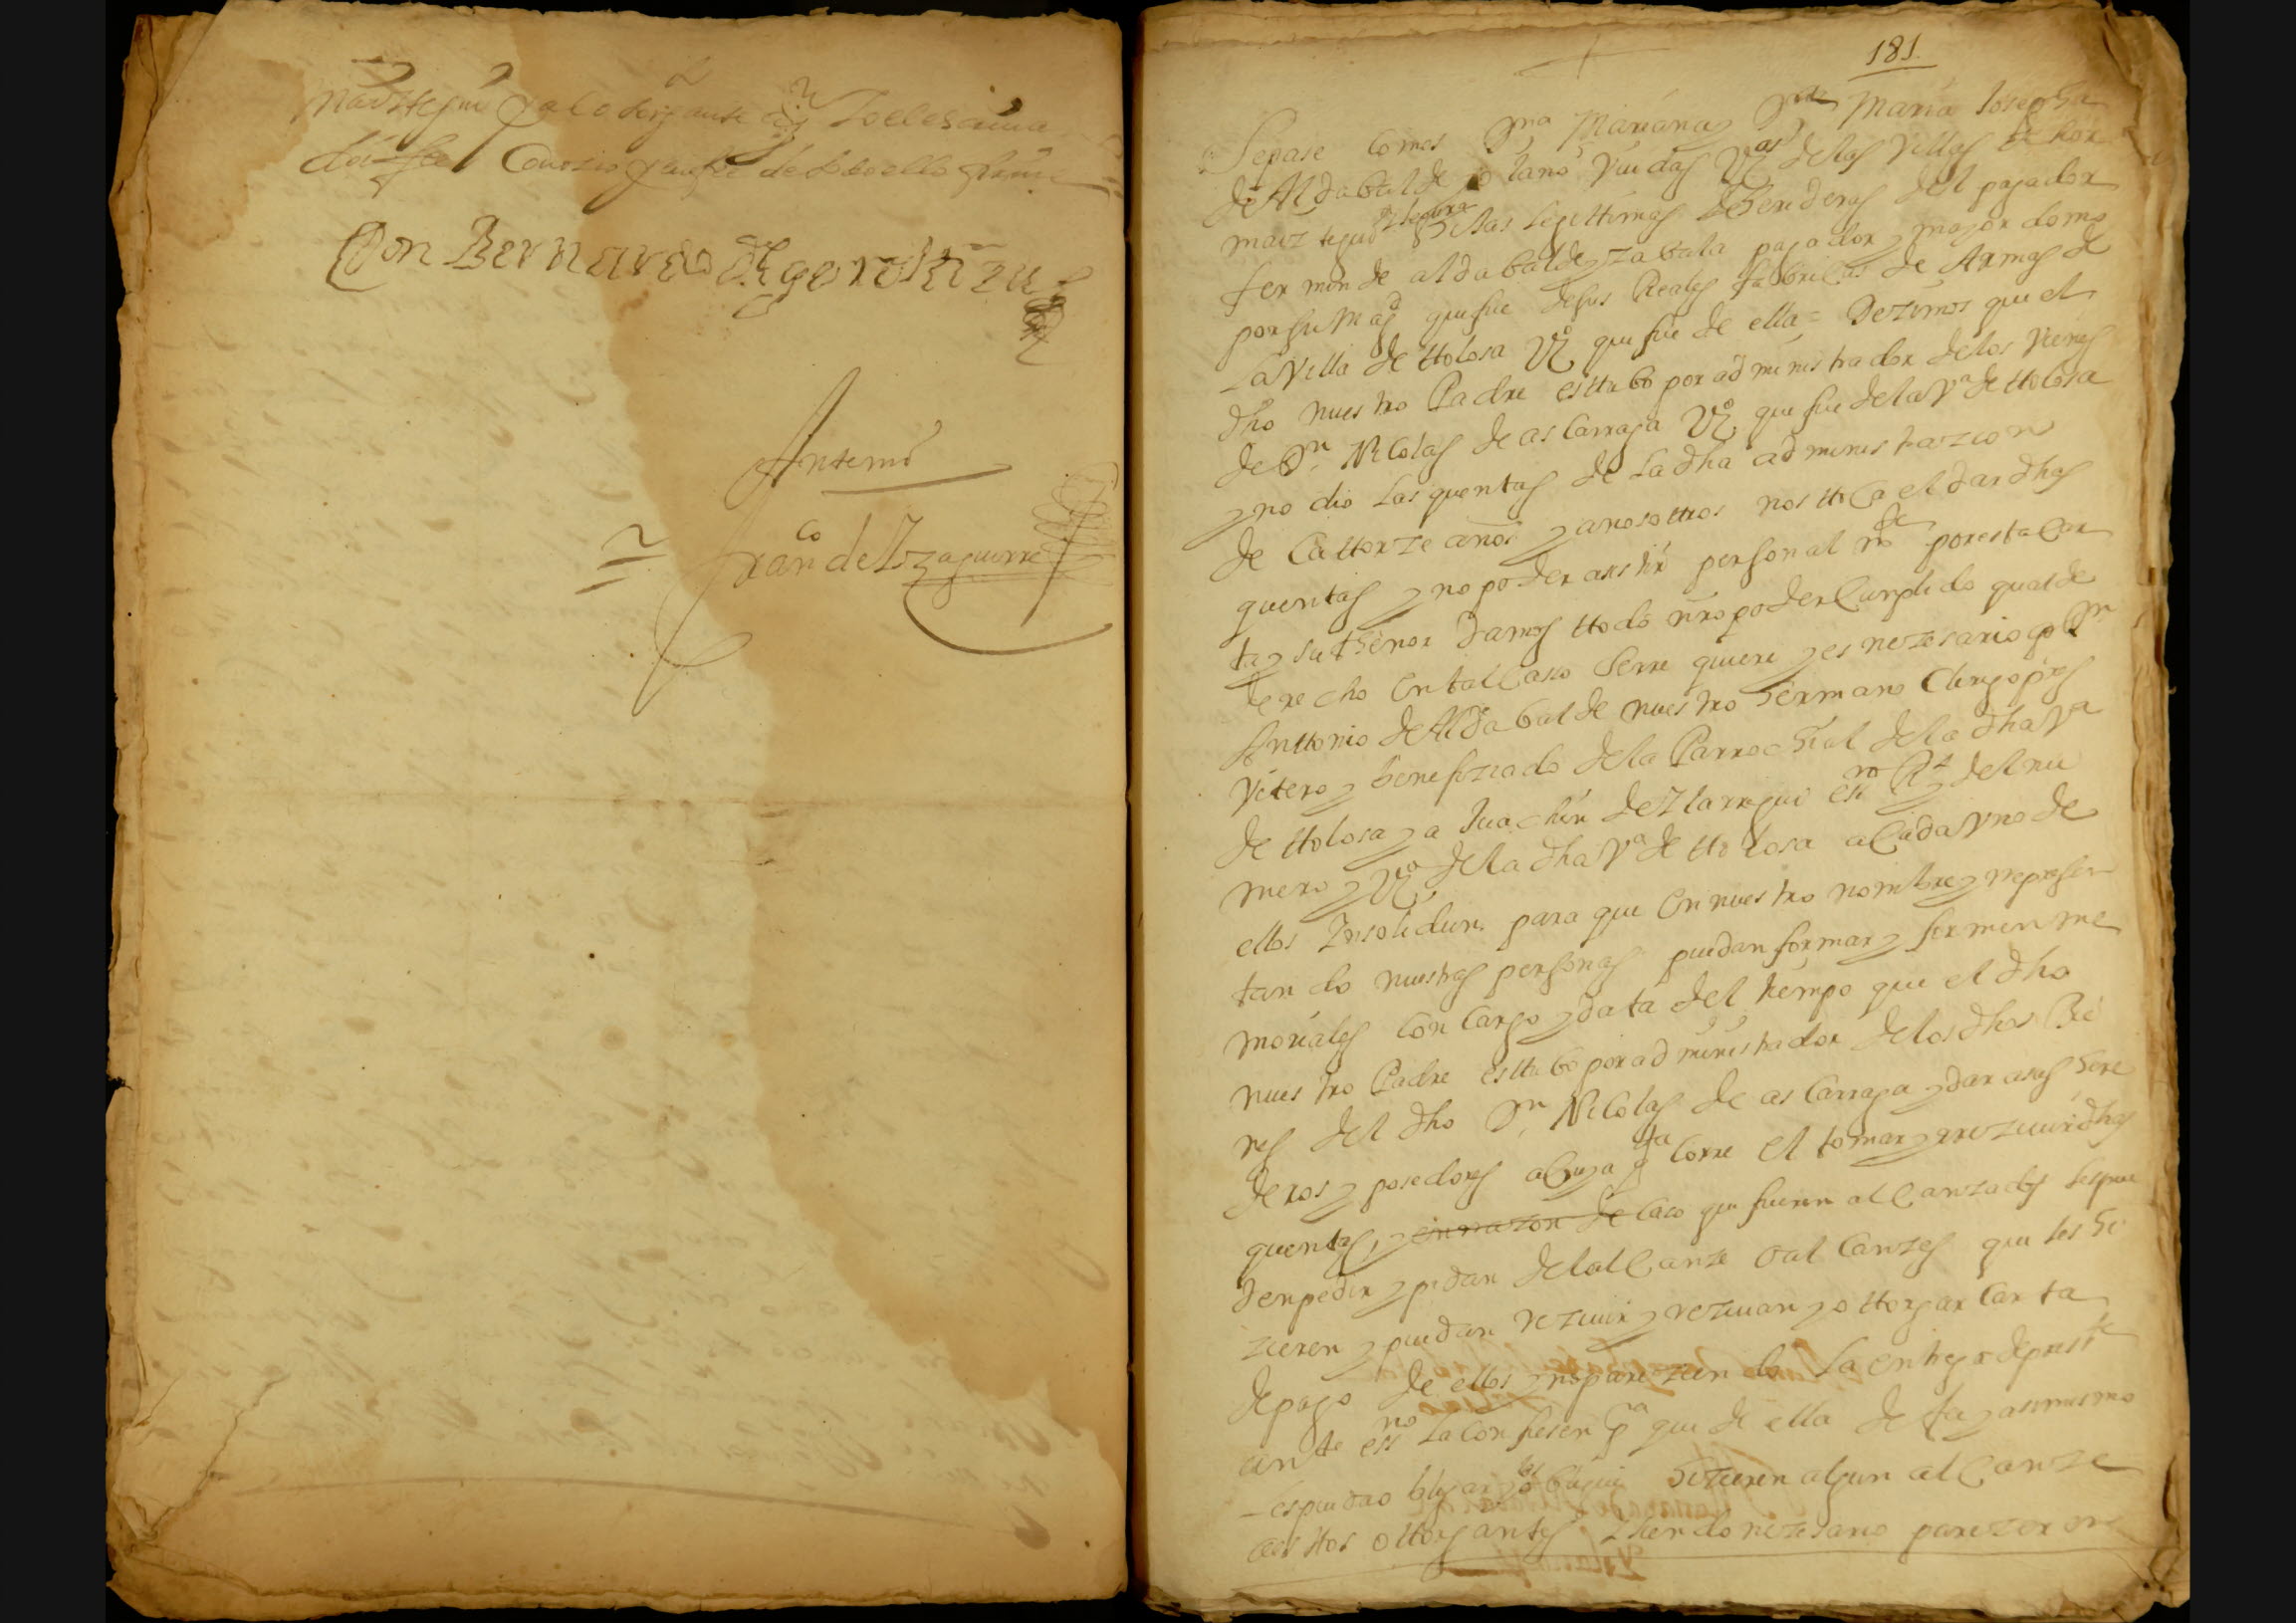 Maiztegui y al otorgante yo el escriuano
doi fee Conozco y en fee de todo ello firme
Don Bernardo de gorostizu
Antemi
Franco de Yzaguirre
181
Sepase Comos Dna Mariana y Dna Maria Josepha
de Aldabalde Solano Viudas Vas de las Villas de
maiztegui hijas legittimas herederas del pagador
fermin de aldabalde y zabala pagador y mayordomo
por su Magd que fue de sus Reales fabricas de Armas de
La Villa de ttolosa Vo que fue de ella = Dezimos que el
dho nuestro Padre esttubo por administrador de los Vienes
de Dn Nicolas de ascarraga Vo que fue de la Va de ttolosa
y no dio Las quentas de La dha administrazion
de Cattorze años y anosottros nos ttoca el dar dhas
quentas y no poder asistir personal mte por esta Car
ta y su thenor Damos ttodo nro poder Cumplido qual de
derecho en tal Caso se rre quiere y es nezesario a Dn
Anttonio de Aldabalde nuestro hermano Clerigo pres
Vitero y benefiziado de la Parrochial de la dha Va
de ttolosa y a Juachin de Ylarregui essno Rl y del nu
mero y Vo de la dha Va de ttolosa a Cada Vno de
ellos Ynsolidun para que en nuestro nombre y represen
tando nuestras personas puedan formar y formen me
moriales Con Cargo y data del tiempo que el dho
nuestro Padre esttubo por administrador de los dhos Bie
nes del dho Dn Nicolas de ascarraga y dar a sus here
deros y posedores a Cuya qta Corre el tomar y rrezeuir dhas
quentas, y en razon de Caso que fueren alCanzados les pue
den pedir y pidan del alCanze o alCanzes que les hi
zieren y puedan rezeuir y rezeuan y ottorgar Carta
de pago de ellos y no pareziendo La entrega de presste
ante essno La Confiesen pa que de ella de fe y asimismo
les puedao bligar y obligue hizieren algun alCanze
a esttos ottorgantes siendo nezesario parezer en